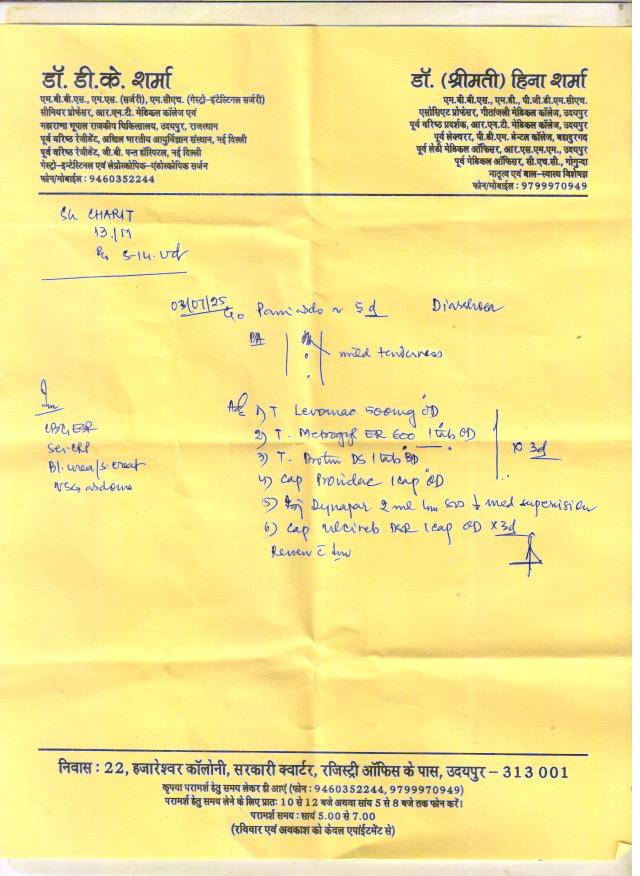 डॉ. डी.के. शर्मा
एम.बी.बी.एस., एम.एस. (सर्जरी), एम.सीएच. (गेस्ट्रो-इंटेस्टिनल सर्जरी)
सीनियर प्रोफेसर, आर.एन.टी. मेडिकल कॉलेज एवं
महाराणा भूपाल राजकीय चिकित्सालय, उदयपुर, राजस्थान
पूर्व वरिष्ठ रेजीडेंट, अखिल भारतीय आयुर्विज्ञान संस्थान, नई दिल्ली
पूर्व वरिष्ठ रेजीडेंट, जी.बी. पन्त हॉस्पिटल, नई दिल्ली
गेस्ट्रो-इन्टेस्टिनल एवं लेप्रोस्कोपिक-एंडोस्कोपिक सर्जन
फोन/मोबाईल : 9460352244
डॉ. (श्रीमती) हिना शर्मा
एम.बी.बी.एस., एम.डी., पी.जी.डी.एम.सीएच.
एसोसिएट प्रोफेसर, गीतांजली मेडिकल कॉलेज, उदयपुर
पूर्व वरिष्ठ प्रदर्शक, आर.एन.टी. मेडिकल कॉलेज, उदयपुर
पूर्व लेक्चरर, पी.डी.एम. डेन्टल कॉलेज, बहादुरगढ
पूर्व लेडी मेडिकल ऑफिसर, आर.एस.एम.एम., उदयपुर
पूर्व मेडिकल ऑफिसर, सी.एच.सी., गोगुन्दा
मातृत्व एवं बाल-स्वास्थ्य विशेषज्ञ
फोन/मोबाईल : 9799970949
CHARIT
13/M
S-14. Ud
03/07/25 5d Diarrhoea
PA mild tenderness
CBC ESR
Ser CRP
Bl. urea/s. creat
USG abdomen
Adv 1) T 500mg OD
2) T. Metrogyl ER 600 1 tab OD
3) T. DS 1 tab BD
x 3d
4) Cap 1 cap OD
5) Inj Dynapar 2 ml Im SOS ↓ med supervision
6) Cap DSR 1 cap OD x 3d
Review c̄ Inv
निवास : 22, हजारेश्वर कॉलोनी, सरकारी क्वार्टर, रजिस्ट्री ऑफिस के पास, उदयपुर – 313 001
कृपया परामर्श हेतु समय लेकर ही आएं (फोन : 9460352244, 9799970949)
परामर्श हेतु समय लेने के लिए प्रातः 10 से 12 बजे अथवा सांय 5 से 8 बजे तक फोन करें।
परामर्श समय : सायं 5.00 से 7.00
(रविवार एवं अवकाश को केवल एपांईटमेंट से)